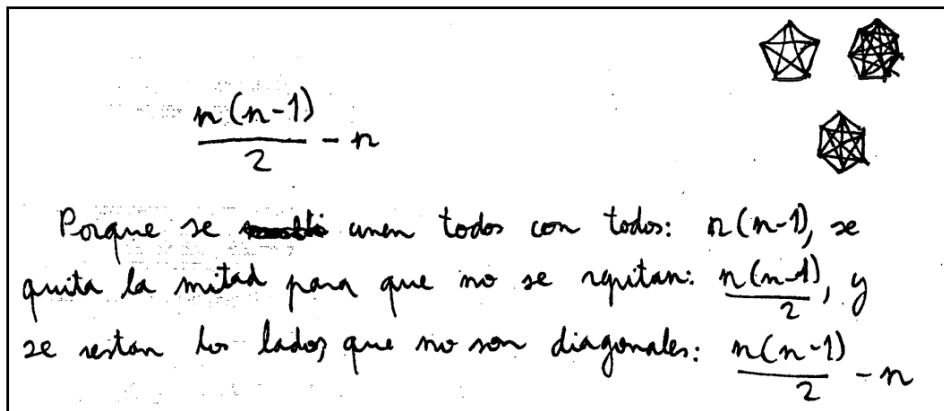 n(n-1)/2 - n
Porque se unen todos con todos: n(n-1), se
quita la mitad para que no se rquitan: n(n-1)/2, y
se restan los lados, que no son diagonales: n(n-1)/2 - n